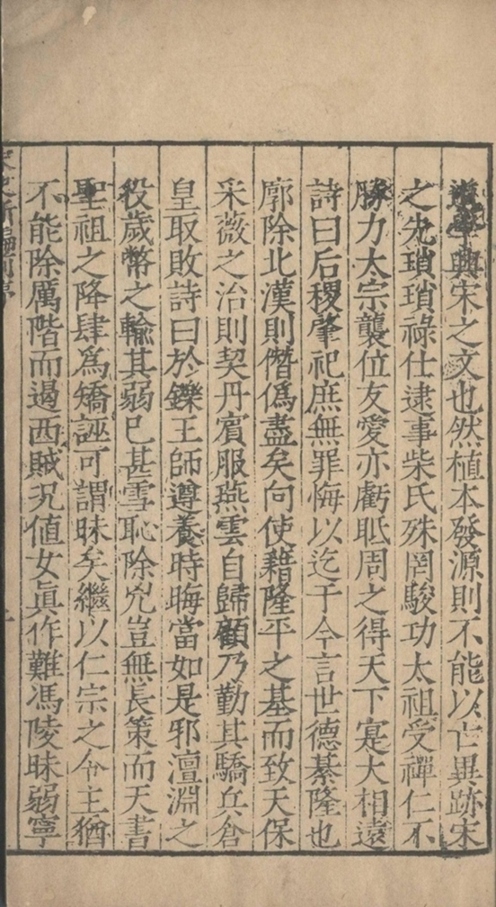 學興宋之文也然植本發源則不能以亡異跡宋
之先瑣瑣祿仕逮事柴氏殊罔駿功太祖受禪仁不
勝力太宗襲位友愛亦虧眂周之得天下寔大相遠
詩曰后稷肇祀庶無罪悔以迄于今言世德綦隆也
廓除北漢則僭僞盡矣向使藉隆平之基而致天保
采薇之治則契丹賓服燕雲自歸顧乃勤其驕兵倉
皇取敗詩曰於鑠王師遵養時晦當如是邪澶淵之
役歲幣之輸其弱已甚雪恥除兇豈無長策而天書
聖祖之降肆爲矯誣可謂昧矣繼以仁宗之令主猶
不能除厲階而遏西賊况値女眞作難馮陵昧弱寧
宋史新編